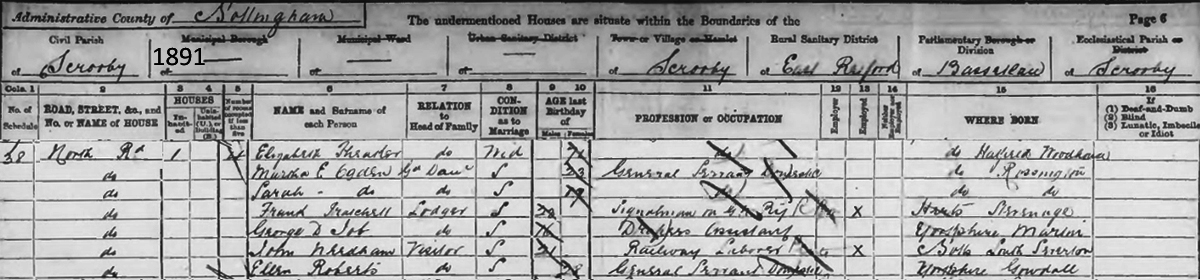 Administrative County of Nottingham
The undermentioned Houses are situate within the Boundaries of the
Page 6
Civil Parish
of Scrooby
1891
Municipal Borough
of
Municipal Ward
of
Urban Sanitary District
of
Town or Village or Hamlet
of Scrooby
Rural Sanitary District
of East Retford
Parliamentary Borough or Division
of Bassetlaw
Ecclesiastical Parish or District
of Scrooby
Cols. 1 2 3 4 5 6 7 8 9 10 11 12 13 14 15 16
No. of Schedule
ROAD, STREET, &c., and No. or NAME of HOUSE
HOUSES
Inhabited
Uninhabited (U.) or Building (B.)
Number of rooms occupied if less than five
NAME and Surname of each Person
RELATION to Head of Family
CONDITION as to Marriage
AGE last Birthday of
Males
Females
PROFESSION or OCCUPATION
Employer
Employed
Neither Employer nor Employed
WHERE BORN
If
(1) Deaf-and-Dumb
(2) Blind
(3) Lunatic, Imbecile or Idiot
28 North Rd 1 4 Elizabeth do Wid 71 do do
do Martha E Ogden Gd Daur S 23 General Servant Domestic do Rossington
do Sarah do do S 19 do do do
do Frank Lodger S 22 Signalman on G N Ry X Herts Stevenage
do George D Job do S 16 Drapers Assistant Yorkshire
do John Needham Visitor S 21 Railway Laborer X Notts South Leverton
do Ellen Roberts do S 28 General Servant Domestic Yorkshire Gowdall